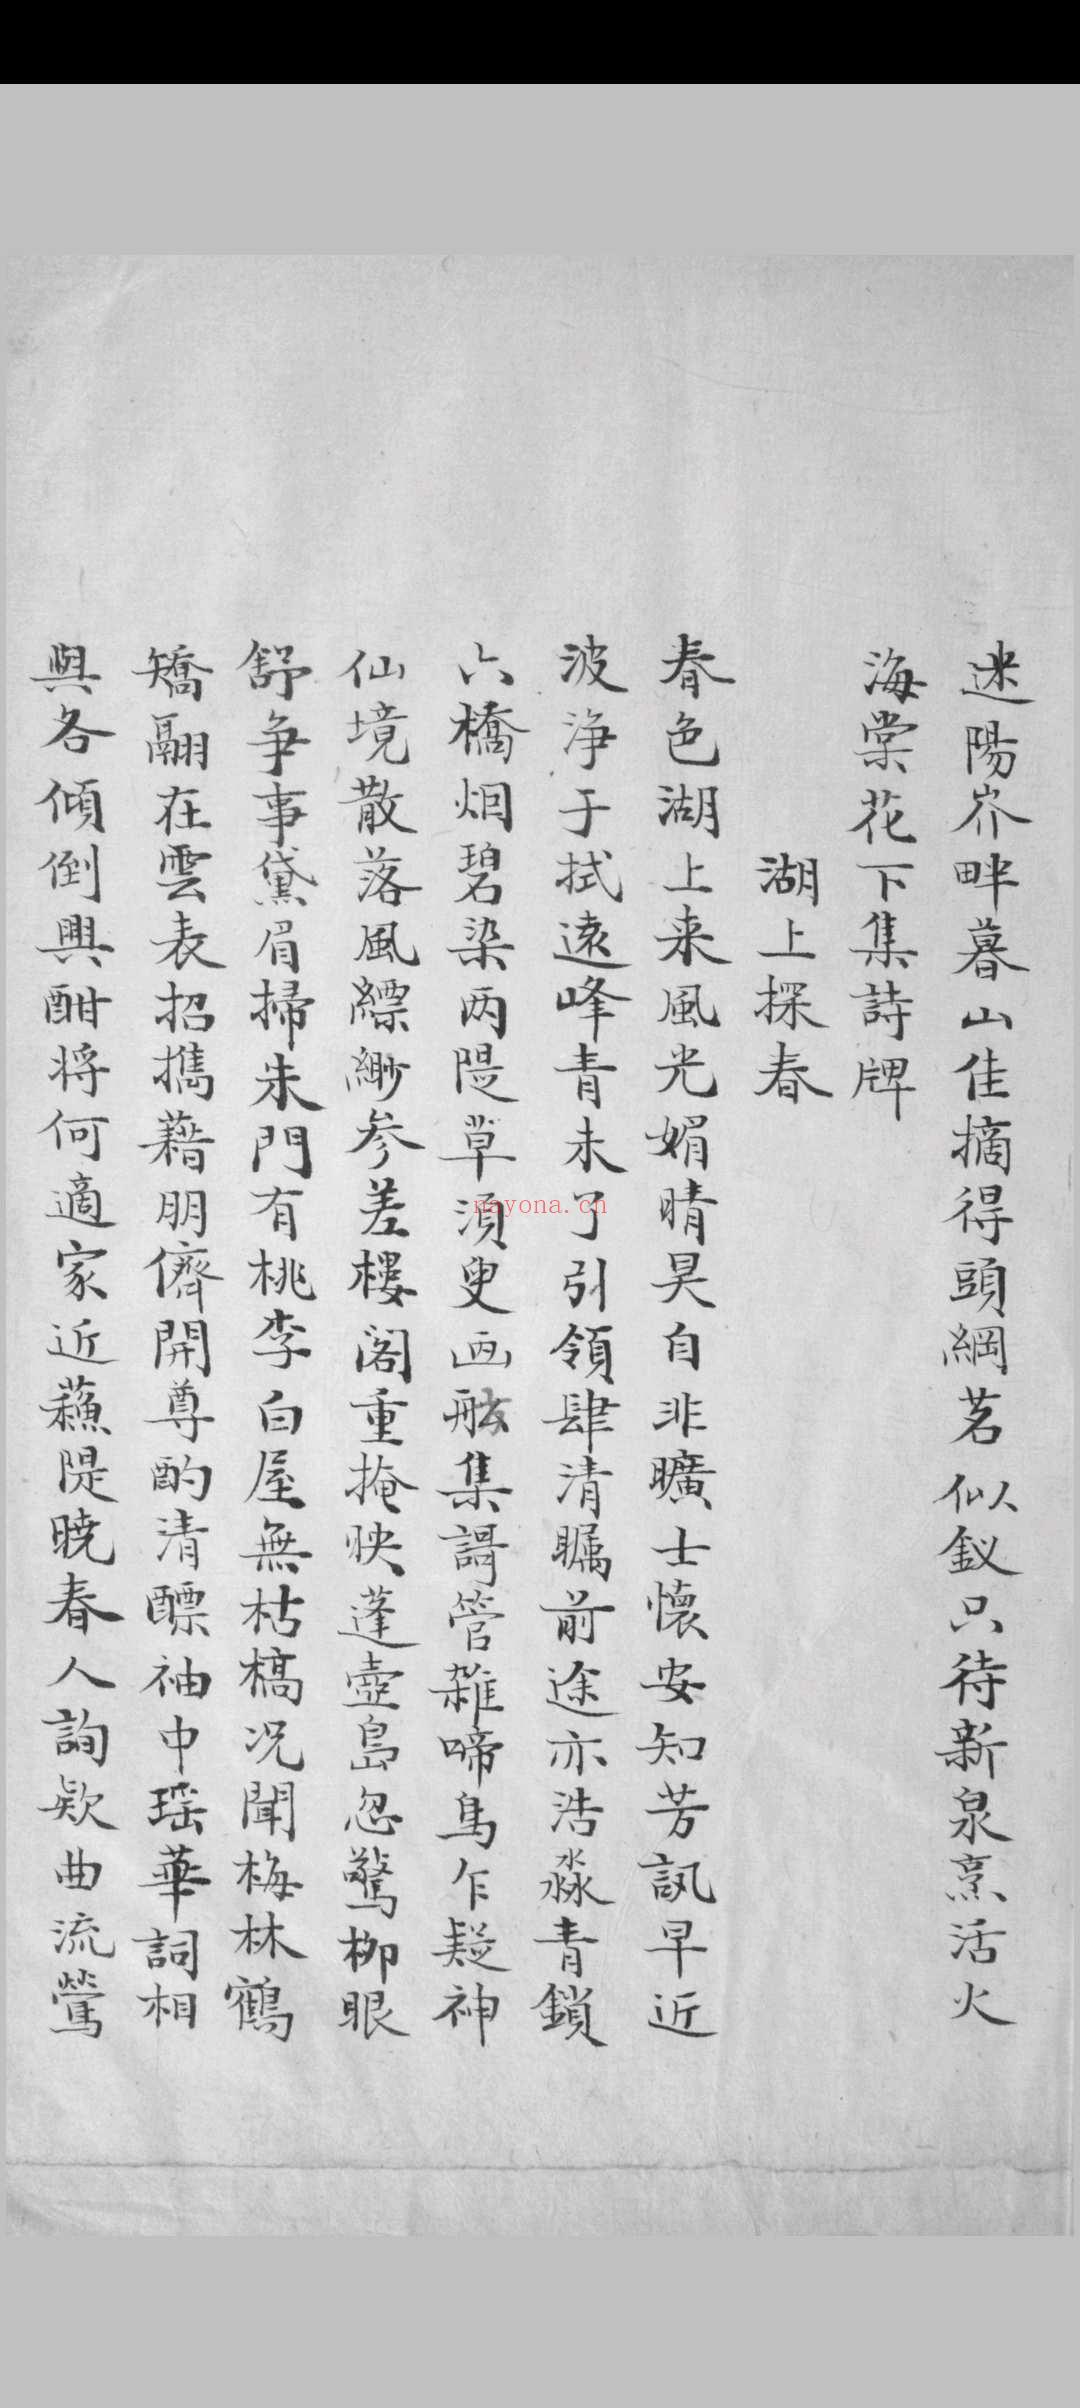 迷陽岕畔暮山佳摘得頭綱茗似釵只待新泉烹活火
海棠花下集詩牌
湖上探春
春色湖上来風光媚晴昊自非曠士懷安知芳訊早近
波浄于拭遠峰青未了引領肆清矚前途亦浩淼青鎖
六橋烟碧染两隄草湏叟画舷集謌管雜啼鳥乍疑神
仙境散落風縹緲参差樓阁重掩映蓬壺島忽驚栁眼
舒争事黛眉掃朱門有桃李白屋無枯槁况聞梅林鶴
矯翮在雲表招携藉朋儕開尊酌清醥袖中瑶華詞相
與各傾倒興酣将何適家近蘓隄暁春人詢欵曲流鶯
nayona.cn